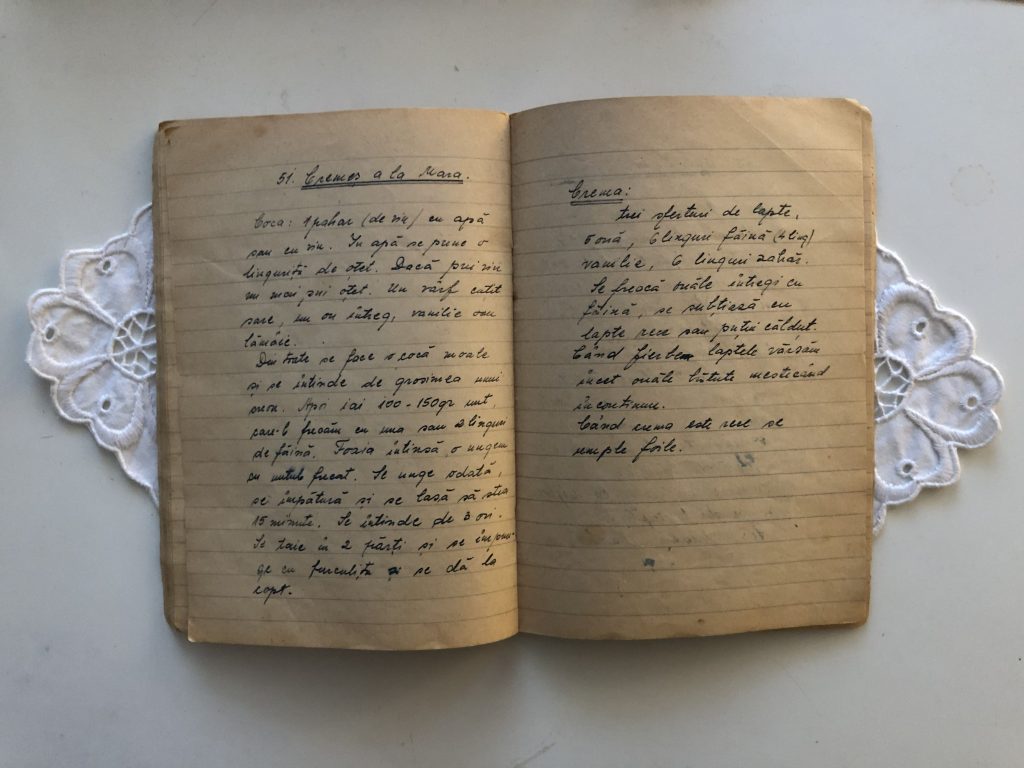 51. Cremeș a la Mara.
Coca: 1 pahar (de vin) cu apă
sau cu vin. În apă se pune o
linguriță de oțet. Dacă pui vin
nu mai pui oțet. Un vârf cuțit
sare, un ou întreg, vanilie sau
lămâie.
Din toate se face o cocă moale
și se întinde de grosimea unui
creion. Apoi iai 100-150gr unt,
care-l frecăm cu una sau 2 linguri
de făină. Foaia întinsă o ungem
cu untul frecat. Se unge odată,
se împătură și se lasă să stea
15 minute. Se întinde de 3 ori.
Se taie în 2 părți și se împun-
ge cu furculița și se dă la
copt.
Crema:
trei sferturi de lapte,
5 ouă, 6 linguri făină (4 ling)
vanilie, 6 linguri zahăr.
Se freacă ouăle întregi cu
făină, se subțiază cu
lapte rece sau puțin căldut.
Când fierbe laptele vărsăm
încet ouăle bătute mestecând
încontinuu.
Când crema este rece se
umple foile.